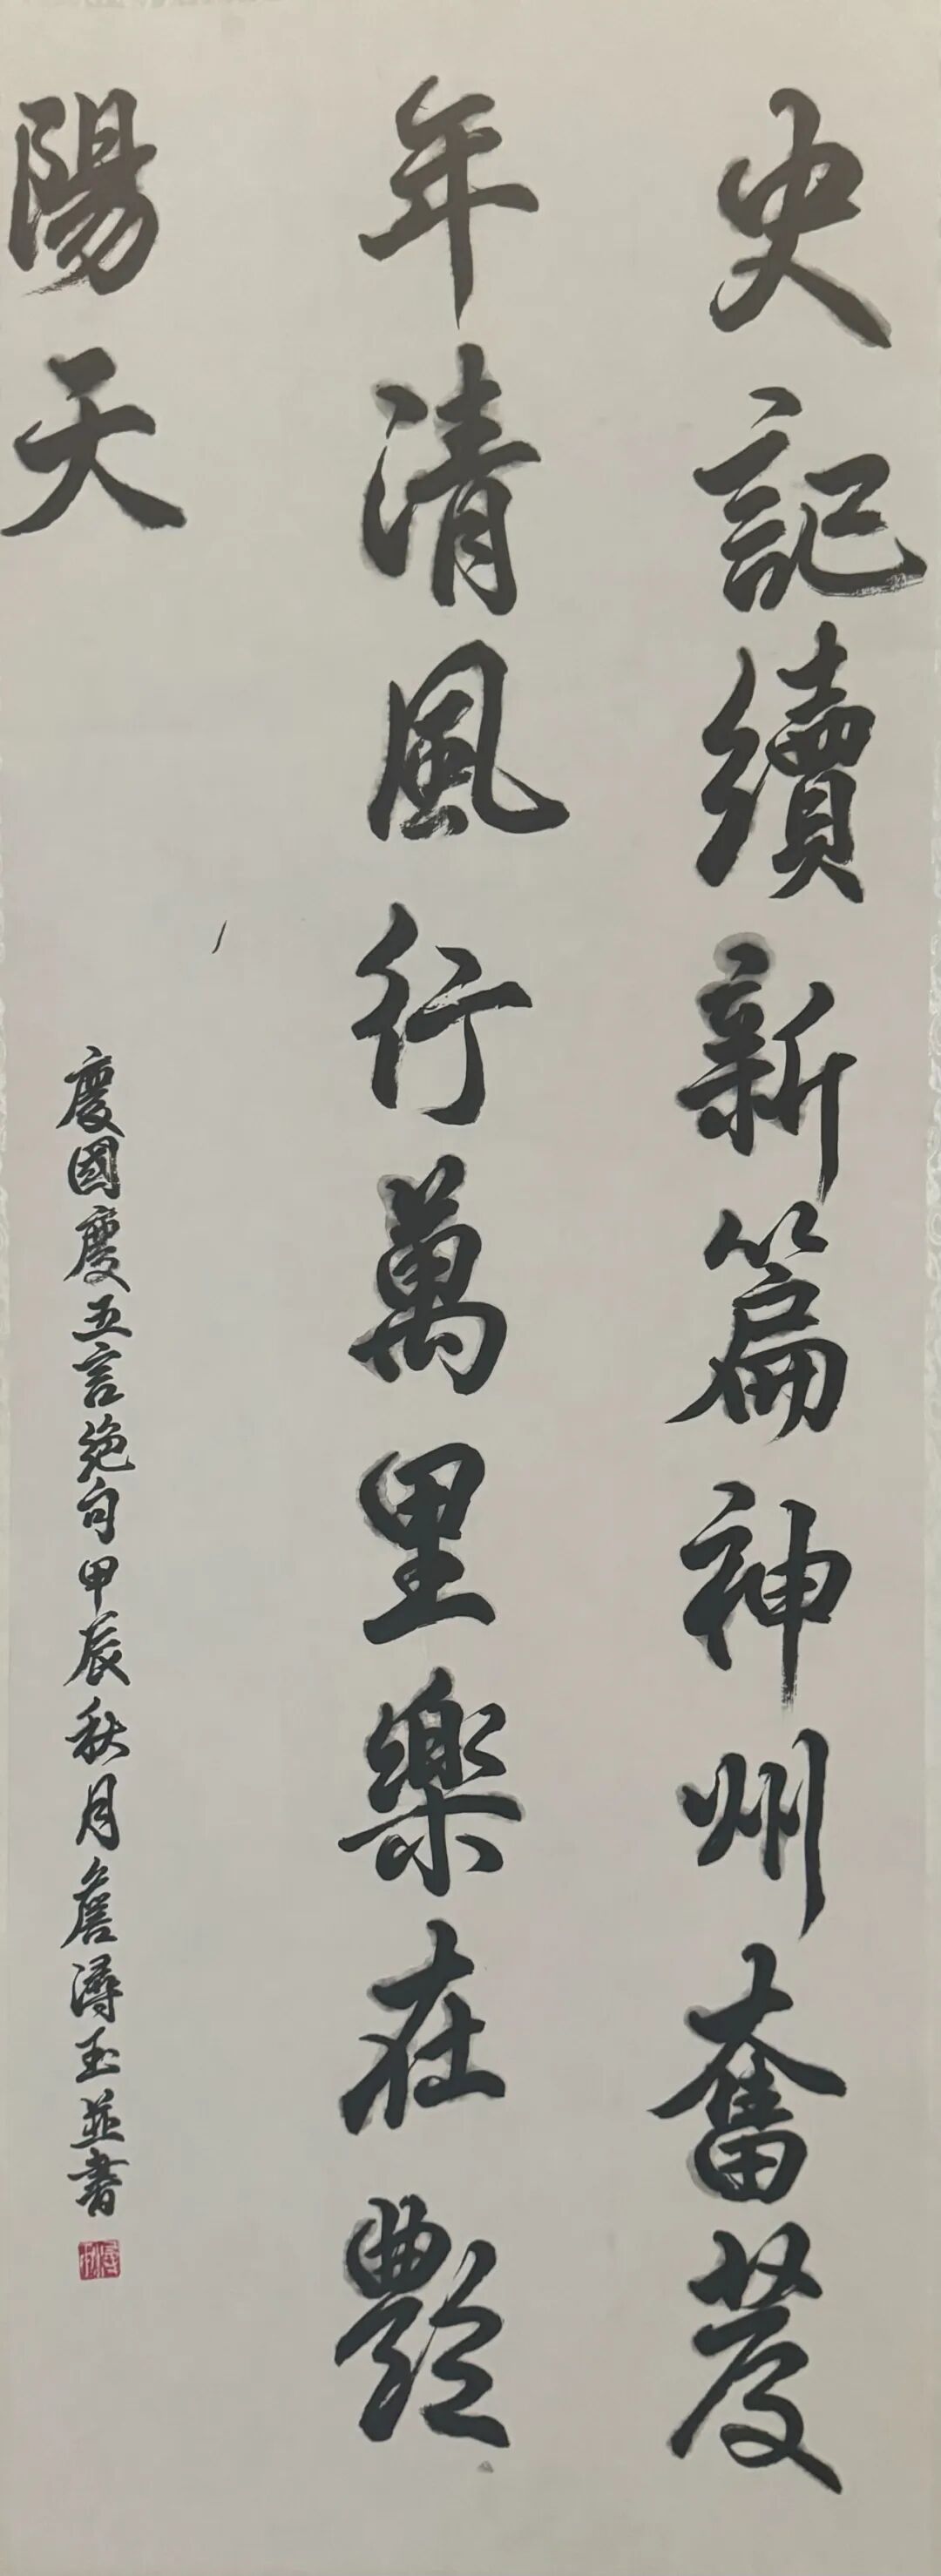 史記續新篇神州奮發
年清風行萬里樂在艷
陽天
慶國慶五言絕句甲辰秋月詹潯玉並書